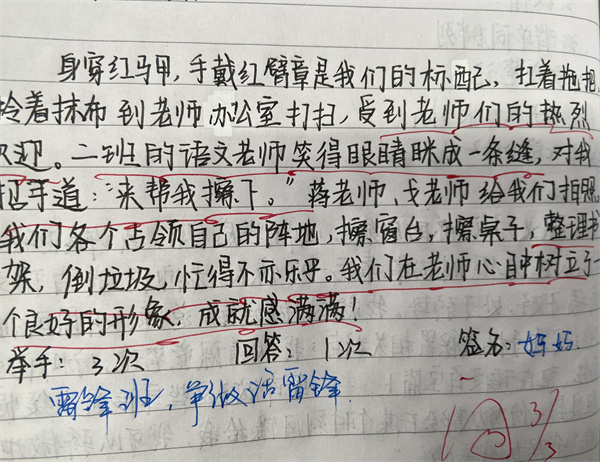 身穿红马甲,手戴红臂章是我们的标配,扛着拖把
拎着抹布到老师办公室打扫,受到老师们的热烈
欢迎。二班的语文老师笑得眼睛眯成一条缝,对我
招手道:"来帮我擦下。"蒋老师、戈老师给我们拍照
我们各个占领自己的阵地,擦窗台,擦桌子,整理书
架,倒垃圾,忙得不亦乐乎。我们在老师心目中树立了一
个良好的形象,成就感满满!
举手:3次 回答:1次 签名:妈妈
雷锋班,争做活雷锋
3/3